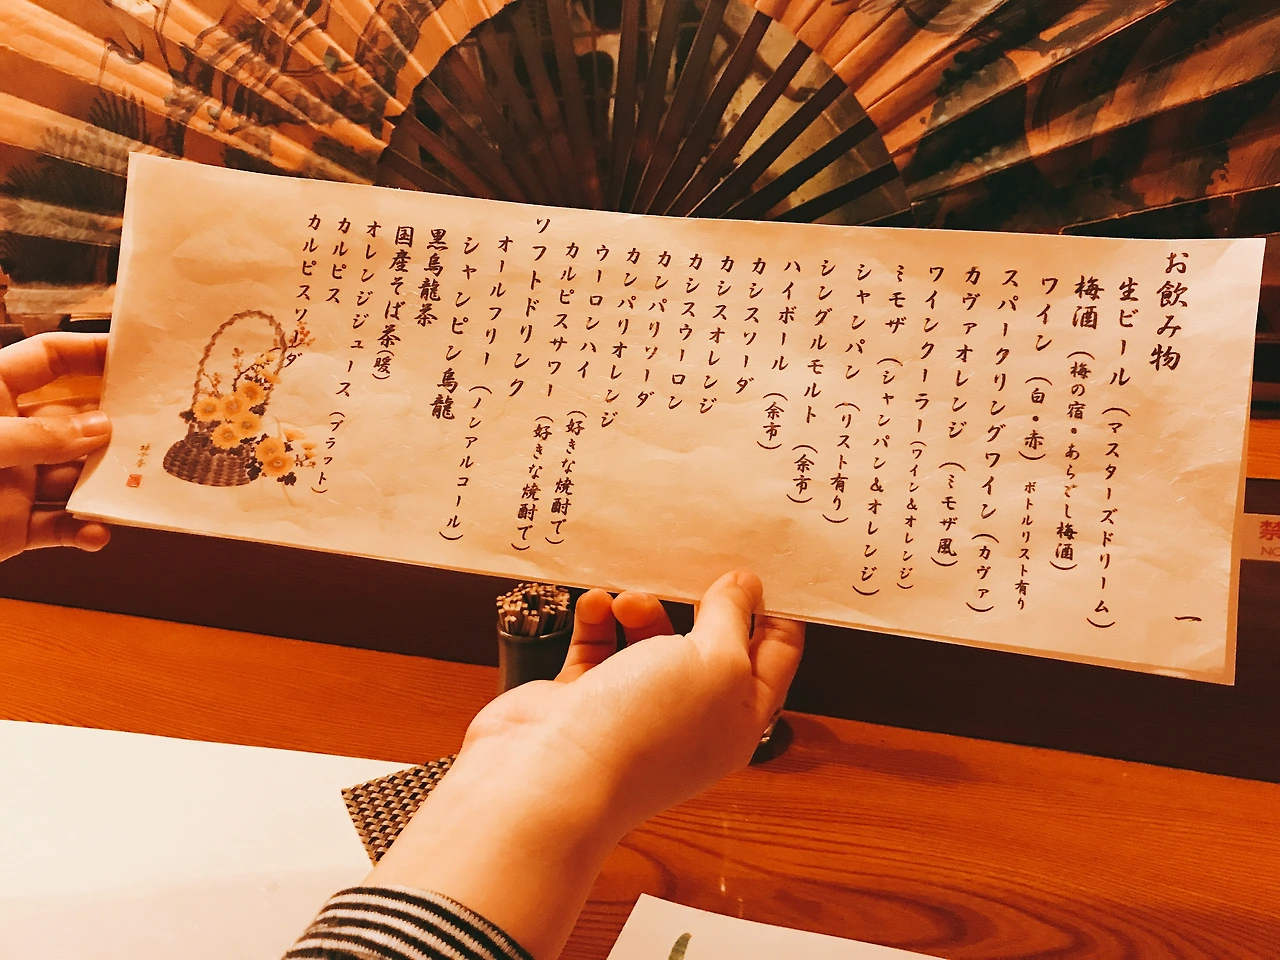 お飲み物
一
生ビール（マスターズドリーム）
梅酒（梅の宿・あらごし梅酒）
ワイン（白・赤）ボトルリスト有り
スパークリングワイン（カヴァ）
カヴァオレンジ（ミモザ風）
ワインクーラー（ワイン&オレンジ）
ミモザ（シャンパン&オレンジ）
シャンパン（リスト有り）
シングルモルト（余市）
ハイボール（余市）
カシスソーダ
カシスオレンジ
カシスウーロン
カンパリソーダ
カンパリオレンジ
ウーロンハイ（好きな焼酎で）
カルピスサワー（好きな焼酎で）
ソフトドリンク
オールフリー（ノンアルコール）
シャンピン烏龍
黒烏龍茶
国産そば茶（暖）
オレンジジュース（ブラット）
カルピス
カルピスソーダ
禁
NO